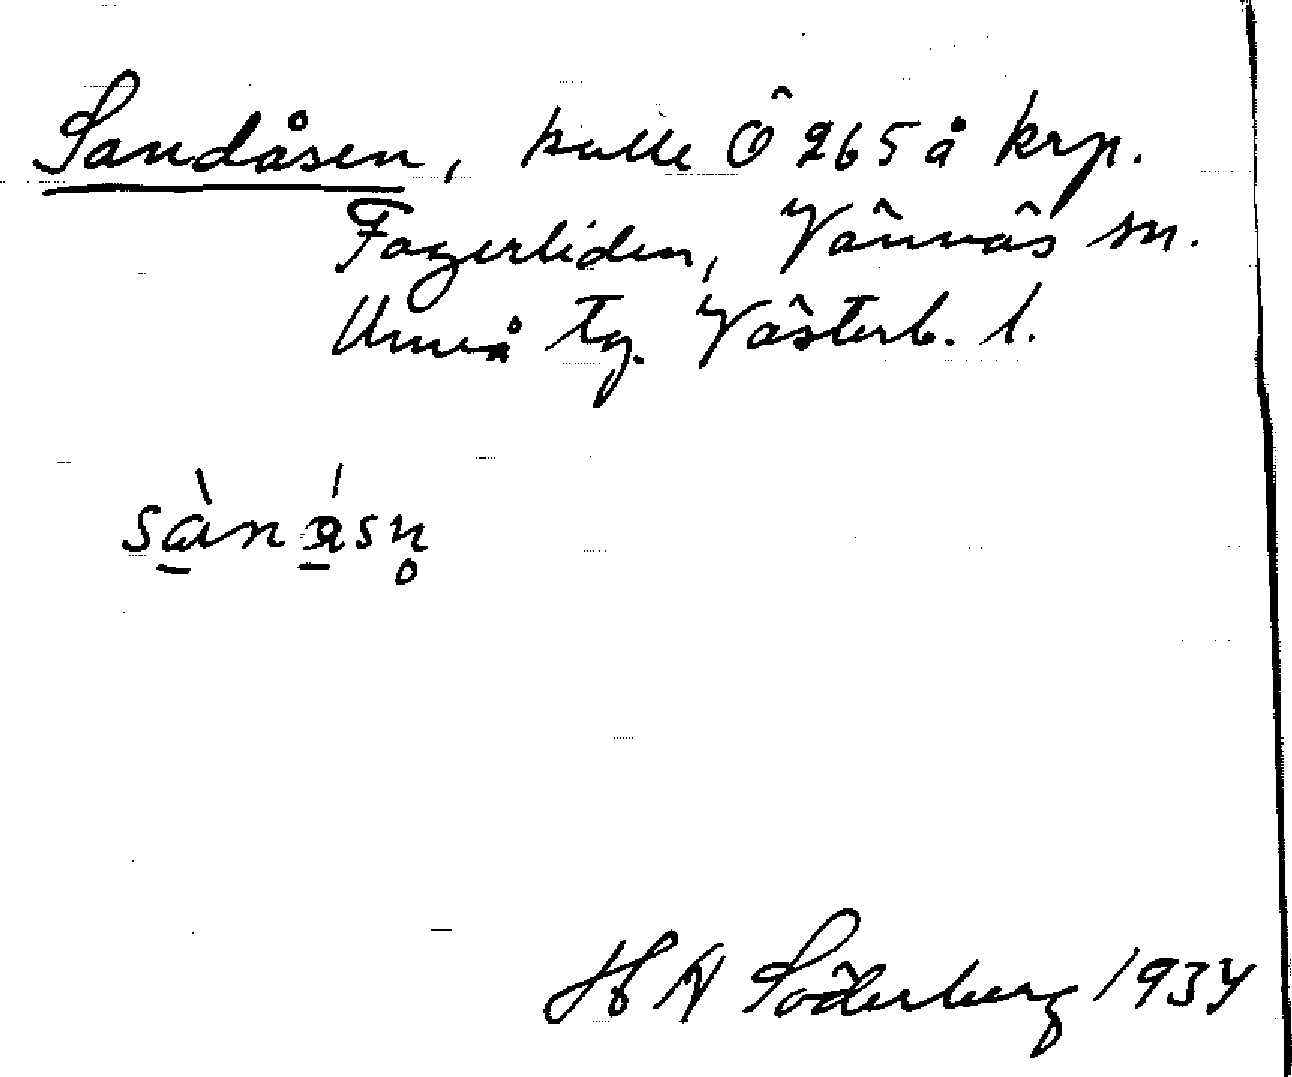 Sandåsen, kulle Ö 265 å krp.
Fagerliden, Vännäs sn.
Umeå tg. Västerb. l.
sànásn̥
H A Söderberg 1934